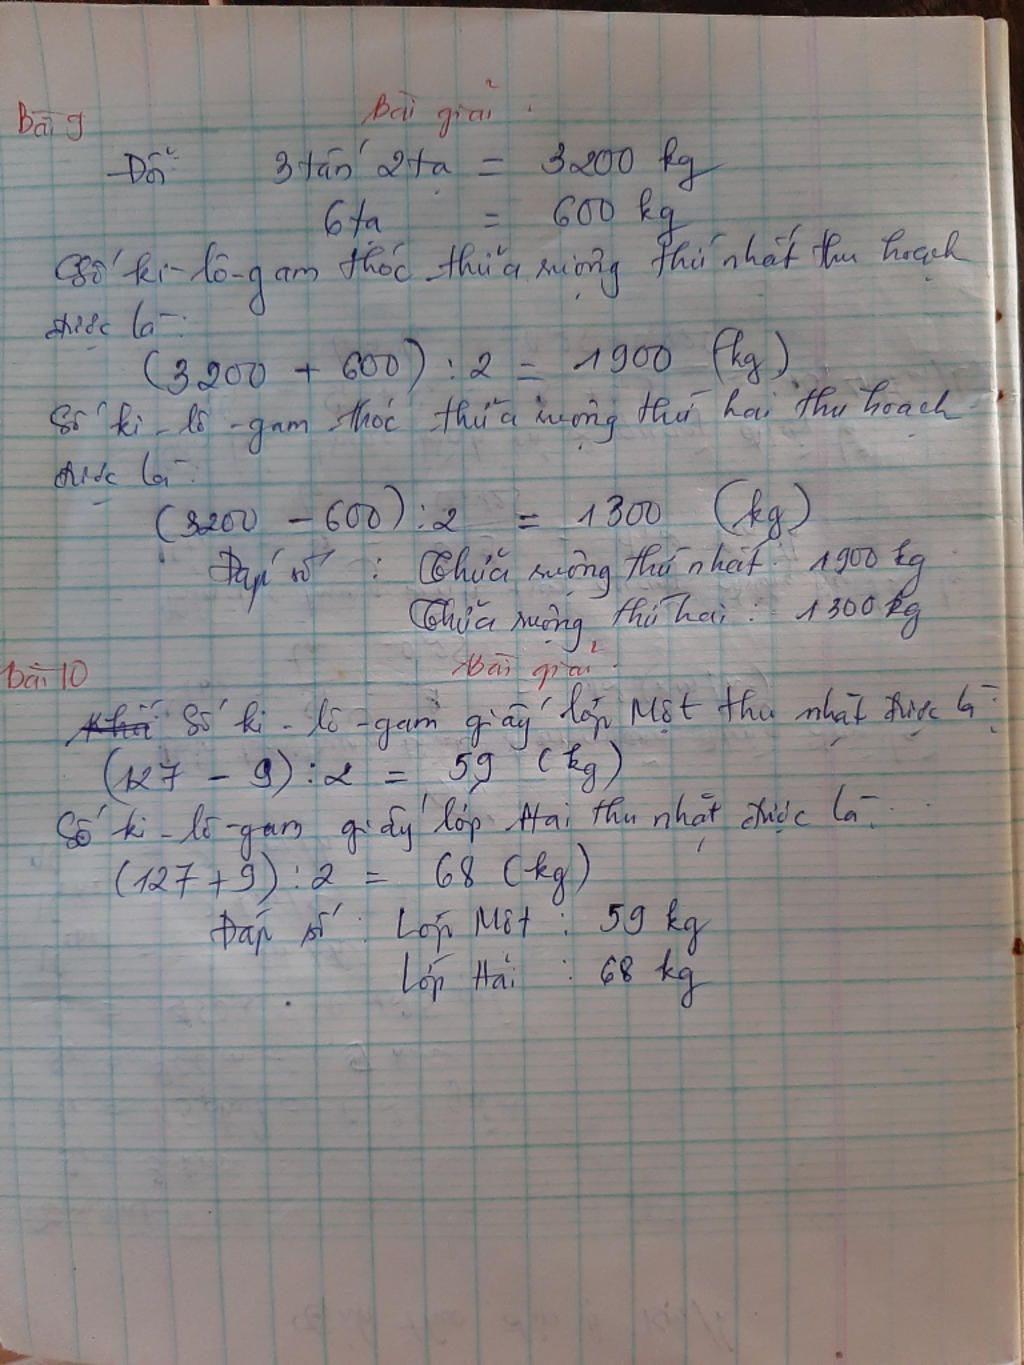 Bài 9
Bài giải.
Đổi 3 tấn 2 tạ = 3200 kg
6 tạ = 600 kg
Số ki-lô-gam thóc thửa ruộng thứ nhất thu hoạch
được là:
(3200 + 600) : 2 = 1900 (kg)
Số ki-lô-gam thóc thửa ruộng thứ hai thu hoạch
được là:
(3200 - 600) : 2 = 1300 (kg)
Đáp số : Thửa ruộng thứ nhất: 1900 kg
Thửa ruộng thứ hai : 1300 kg
Bài 10
Bài giải.
Số ki-lô-gam giấy lớp Một thu nhặt được là:
(127 - 9) : 2 = 59 (kg)
Số ki-lô-gam giấy lớp Hai thu nhặt được là:
(127 + 9) : 2 = 68 (kg)
Đáp số : Lớp Một : 59 kg
Lớp Hai : 68 kg